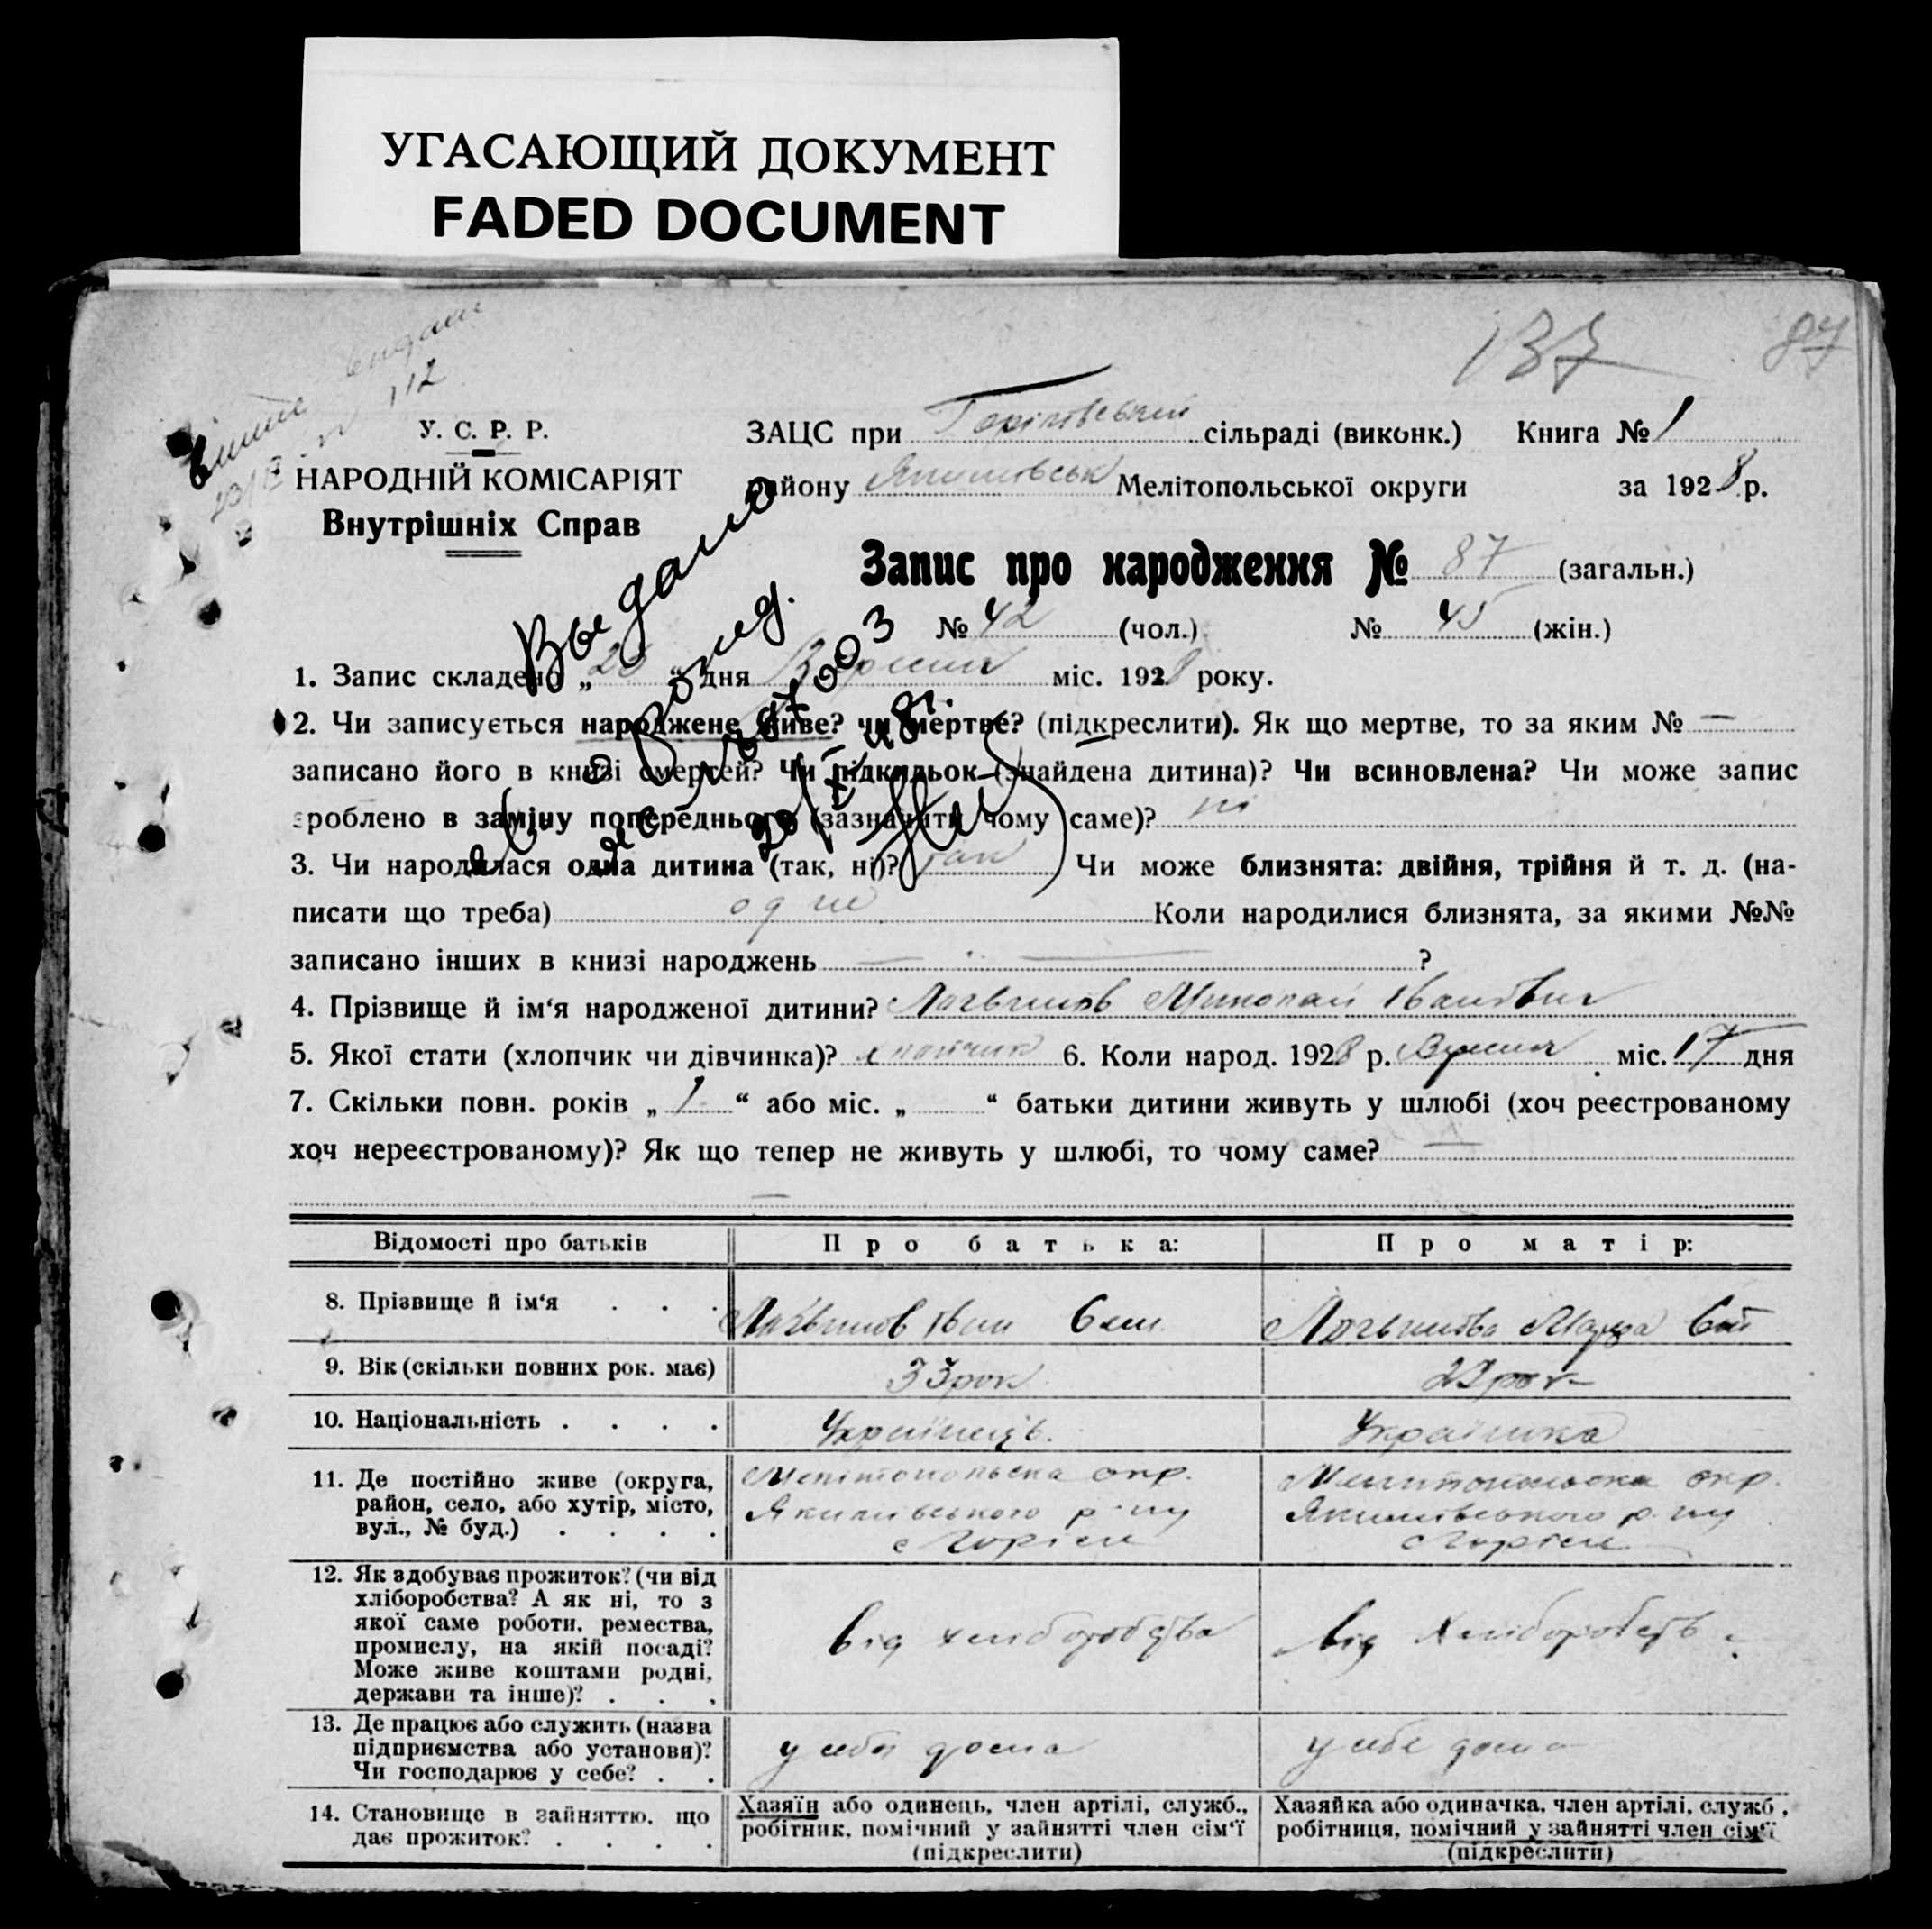 УГАСАЮЩИЙ ДОКУМЕНТ
FADED DOCUMENT
137
87
112
У. С. Р. Р.
НАРОДНІЙ КОМІСАРІЯТ
Внутрішніх Справ
ЗАЦС при сільраді (виконк.) Книга № 1
району Мелітопольської округи за 1928 р.
Запис про народження № 87 (загальн.)
№ 42 (чол.) № 45 (жін.)
Выдано
1. Запис складено „ “ дня міс. 1928 року.
2. Чи записується народжене живе? чи мертве? (підкреслити). Як що мертве, то за яким № —
записано його в книзі смертей? Чи підкидьок (знайдена дитина)? Чи всиновлена? Чи може запис
зроблено в заміну попереднього (зазначити чому саме)? ні
3. Чи народилася одна дитина (так, ні)? так Чи може близнята: двійня, трійня й т. д. (на-
писати що треба) одне Коли народилися близнята, за якими №№
записано інших в книзі народжень — — ?
4. Прізвище й ім‘я народженої дитини? Логвинов Миколай Іванович
5. Якої стати (хлопчик чи дівчинка)? хлопчик 6. Коли народ. 1928 р. міс. 17 дня
7. Скільки повн. років „ 1 “ або міс. „ “ батьки дитини живуть у шлюбі (хоч реєстрованому
хоч нереєстрованому)? Як що тепер не живуть у шлюбі, то чому саме? —
—
Відомості про батьків Про батька: Про матір:
8. Прізвище й ім‘я . . . Логвинов Іван Сем. Логвинова
9. Вік (скільки повних рок. має) 33 рок
10. Національність . . . . Українець. Українка
11. Де постійно живе (округа, Мелітопольська окр. Мелитопольска окр.
район, село, або хутір, місто, Якимівського р-ну Якимівського р-ну
вул., № буд.) . . . . с Горіле с Горіле
12. Як здобуває прожиток? (чи від
хліборобства? А як ні, то з
якої саме роботи, ремества, від хліборобства від хліборобств
промислу, на якій посаді?
Може живе коштами родні,
держави та інше)? . . .
13. Де працює або служить (назва
підприємства або установи)? у себя дома у себе дома
Чи господарює у себе? . .
14. Становище в зайняттю, що Хазяїн або одинець, член артілі, служб., Хазяйка або одиначка, член артілі, служб.,
дає прожиток? . . . . робітник, помічний у зайнятті член сім‘ї робітниця, помічний у зайнятті член сім‘ї
(підкреслити) (підкреслити)